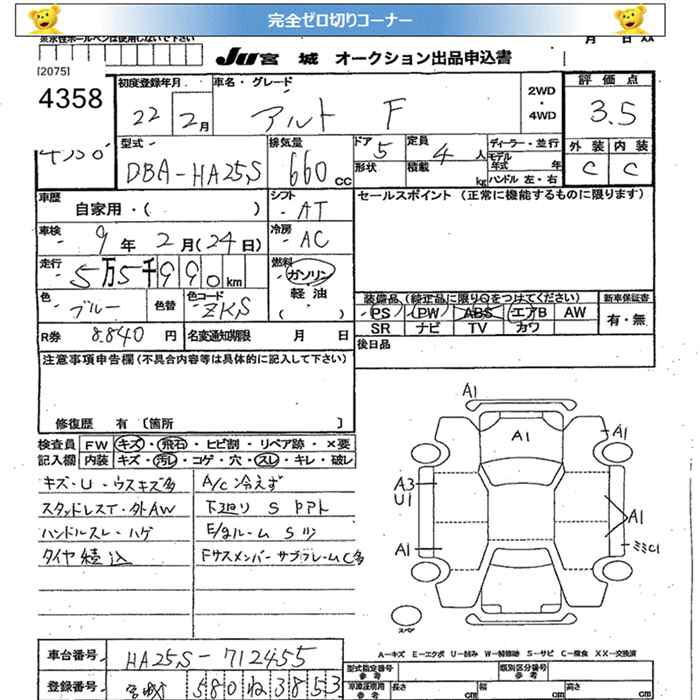 完全ゼロ切りコーナー
月 日
JU 宮城 オークション出品申込書
[2075]
4358
初度登録年月 22 2月
車名・グレード アルト F
2WD ・ 4WD
評価点 3.5
型式 DBA-HA25S
排気量 660 cc
ドア 5 形状
定員 4 人 積載 kg
ディーラー・並行
モデル年式 年
ハンドル 左・右
外装 C 内装 C
車歴 自家用・( )
シフト AT
セールスポイント (正常に機能するものに限ります)
車検 9年 2月 (24日)
冷房 AC
走行 5万5千990km
燃料 ガソリン 軽油 ( )
色 ブルー 色替 色コード ZKS
装備品 (純正品に限り○をつけてください) 新車保証書
PS PW ABS エアB AW 有・無
SR ナビ TV カワ
R券 8.840 円 名変通知期限 月 日
後日品
注意事項申告欄(不具合内容等は具体的に記入して下さい)
修復歴 有 〔箇所 〕
検査員記入欄 FW キズ・飛石・ヒビ割・リペア跡・×要
内装 キズ・汚レ・コゲ・穴・スレ・キレ・破レ
キズ・U・ウスキズ多 A/C冷えず
スタッドレスT・外AW 下廻り S PPト
ハンドルスレ・ハゲ E/gルーム Sリ
タイヤ積込 Fサスメンバー サブフレームC多
A1
A1
A1
A3
U1
A1
A1
C1
スペア
A-キズ E-エクボ U-凹み W-補修跡 S-サビ C-腐食 XX-交換済
車台番号 HA25S-712455
登録番号 宮城 580 ね 3853
型式指定番号 参考 類別区分番号 参考
車庫証明用 参考 長さ cm 幅 cm 高さ cm